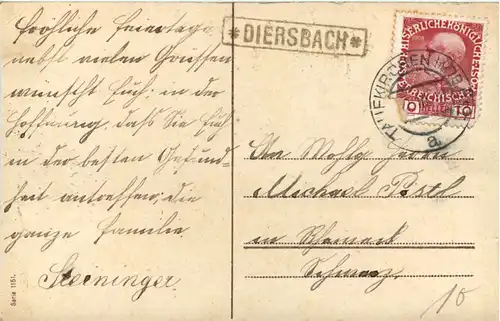 Fröhliche Feiertage
nebst vielen Grüssen
wünscht Euch: in der
Hoffnung, dass Sie Euch
in der besten Gesund-
heit antreffen, die
ganze Familie
Steininger.
Serie 1151.
*DIERSBACH*
KAISERLICHE KÖNIGLICHE
ÖSTERREICHISCHE
10 HELLER 10
TAUFKIRCHEN
a
An Wohlg. Herrn
Michael Pöstl
in
Schwarz
10